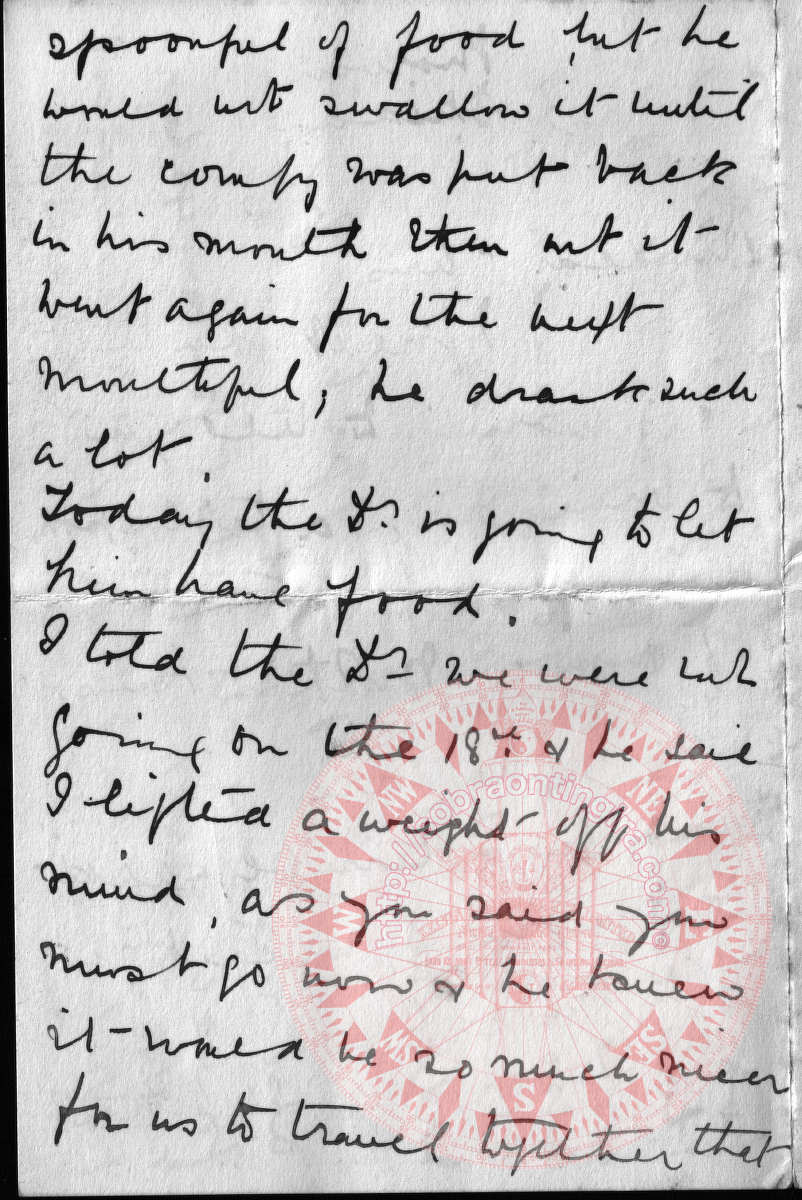 spoonful of food, but he
would not swallow it until
the comfy was put back
in his mouth then out it
went again for the next
mouthful; he drank such
a lot.
Today the Dr. is going to let
him have food.
I told the Dr we were not
going on the 18th. & he said
I lifted a weight off his
mind, as you said you
must go now & he knew
it would be so much nicer
for us to travel together that
NW
NE
W
E
SW
SE
S